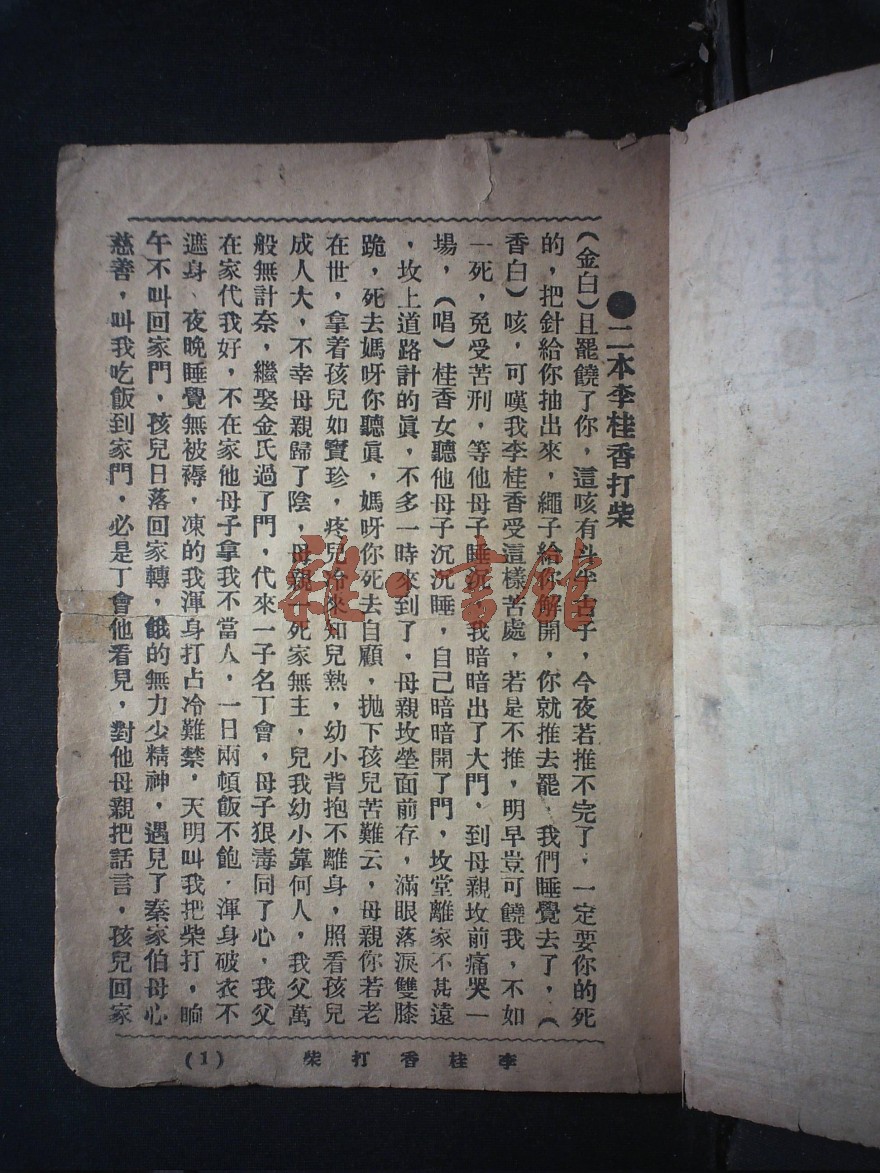 ●二本李桂香打柴
（金白）且罷饒了你，這咳有斗半古子，今夜若推不完了，一定要你的死
的，把針給你抽出來，繩子給你解開，你就推去罷，我們睡覺去了，（
香白）咳，可嘆我李桂香受這樣苦處，若是不推，明早豈可饒我，不如
一死，免受苦刑，等他母子睡沉，我暗暗出了大門，到母親坟前痛哭一
場，（唱）桂香女聽他母子沉沉睡，自己暗暗開了門，坟堂離家不甚遠
，坟上道路計的眞，不多一時來到了，母親坟塋面前存，滿眼落淚雙膝
跪，死去媽呀你聽眞，媽呀你死去自顧，拋下孩兒苦難云，母親你若老
在世，拿着孩兒如寶珍，疼兒冷來知兒熱，幼小背抱不離身，照看孩兒
成人大，不幸母親歸了陰，母親一死家無主，兒我幼小靠何人，我父萬
般無計奈，繼娶金氏過了門，代來一子名丁會，母子狠毒同了心，我父
在家代我好，不在家他母子拿我不當人，一日兩頓飯不飽，渾身破衣不
遮身、夜晚睡覺無被褥，凍的我渾身打占冷難禁，天明叫我把柴打，晌
午不叫回家門，孩兒日落回家轉，餓的無力少精神，遇兒了秦家伯母心
慈善，叫我吃飯到家門，必是丁會他看見，對他母親把話言，孩兒回家
李桂香打柴 （1）
雜·書館